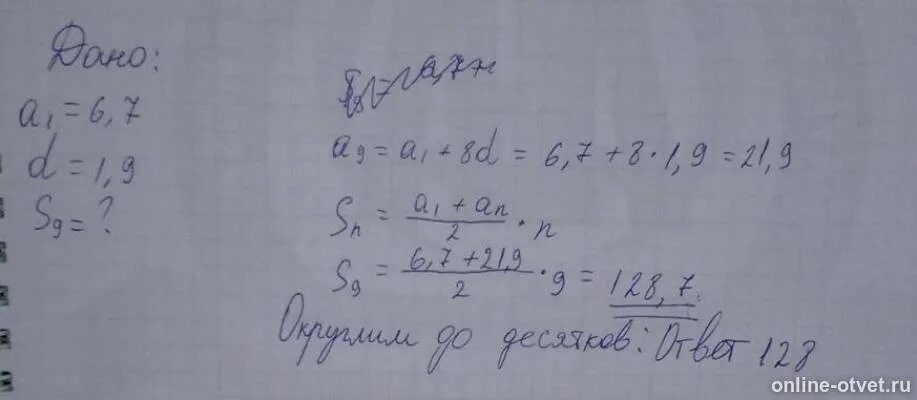 Дано:
a₁ = 6,7
d = 1,9
S₉ = ?
a₉ = a₁ + 8d = 6,7 + 8 · 1,9 = 21,9
Sₙ = (a₁ + aₙ)/2 · n
S₉ = (6,7 + 21,9)/2 · 9 = 128,7.
Округлим до десятков: Ответ 128
online-otvet.ru